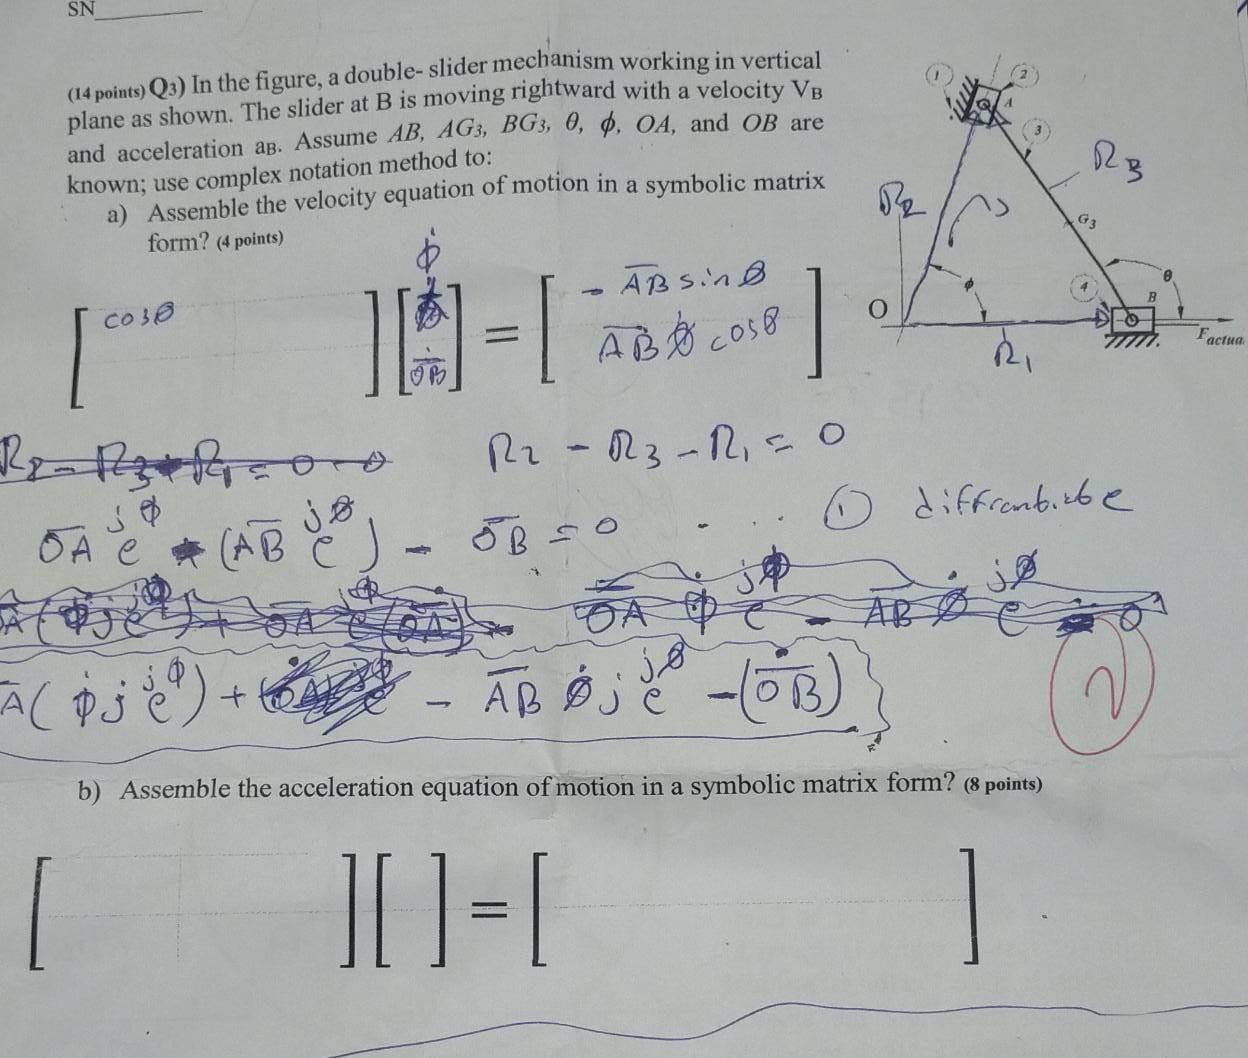 SN
(14 points) Q3) In the figure, a double- slider mechanism working in vertical
plane as shown. The slider at B is moving rightward with a velocity VB
and acceleration aB. Assume AB, AG3, BG3, θ, ϕ, OA, and OB are
known; use complex notation method to:
a) Assemble the velocity equation of motion in a symbolic matrix
form? (4 points)
1
2
A
3
R3
R2
G3
ϕ
4
B
θ
O
R1
Factua
cosθ
ϕ̇
OḂ
=
- AB sin θ
AB θ̇ cosθ
R2 - R3 - R1 = 0
OA e^jϕ - (AB e^jθ) - OB = 0 - ... ①
A( ϕ̇ j e^jϕ) + - AB θ̇ j e^jθ - (OḂ)
2
b) Assemble the acceleration equation of motion in a symbolic matrix form? (8 points)
=